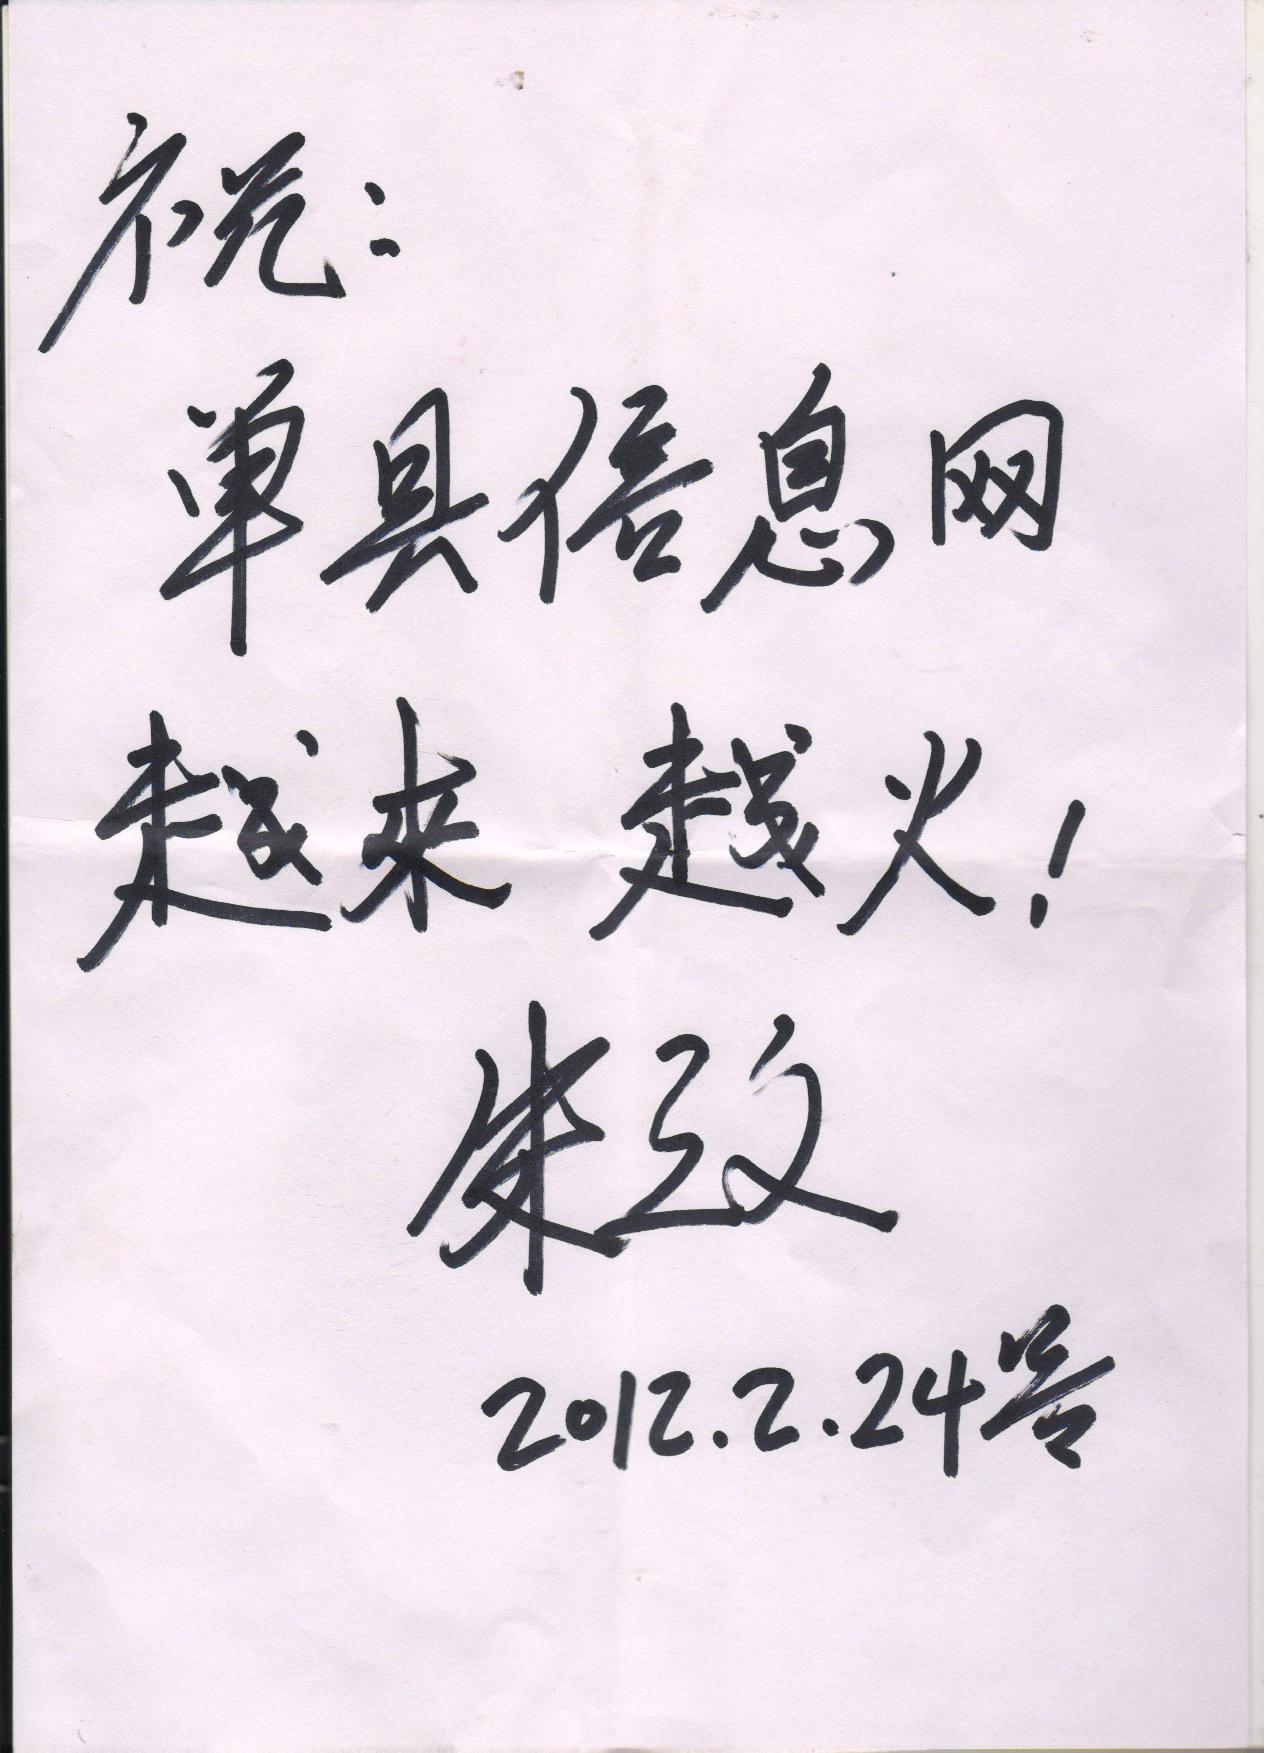 祝：
单县信息网
越来越火！
朱之文
2012.2.24号